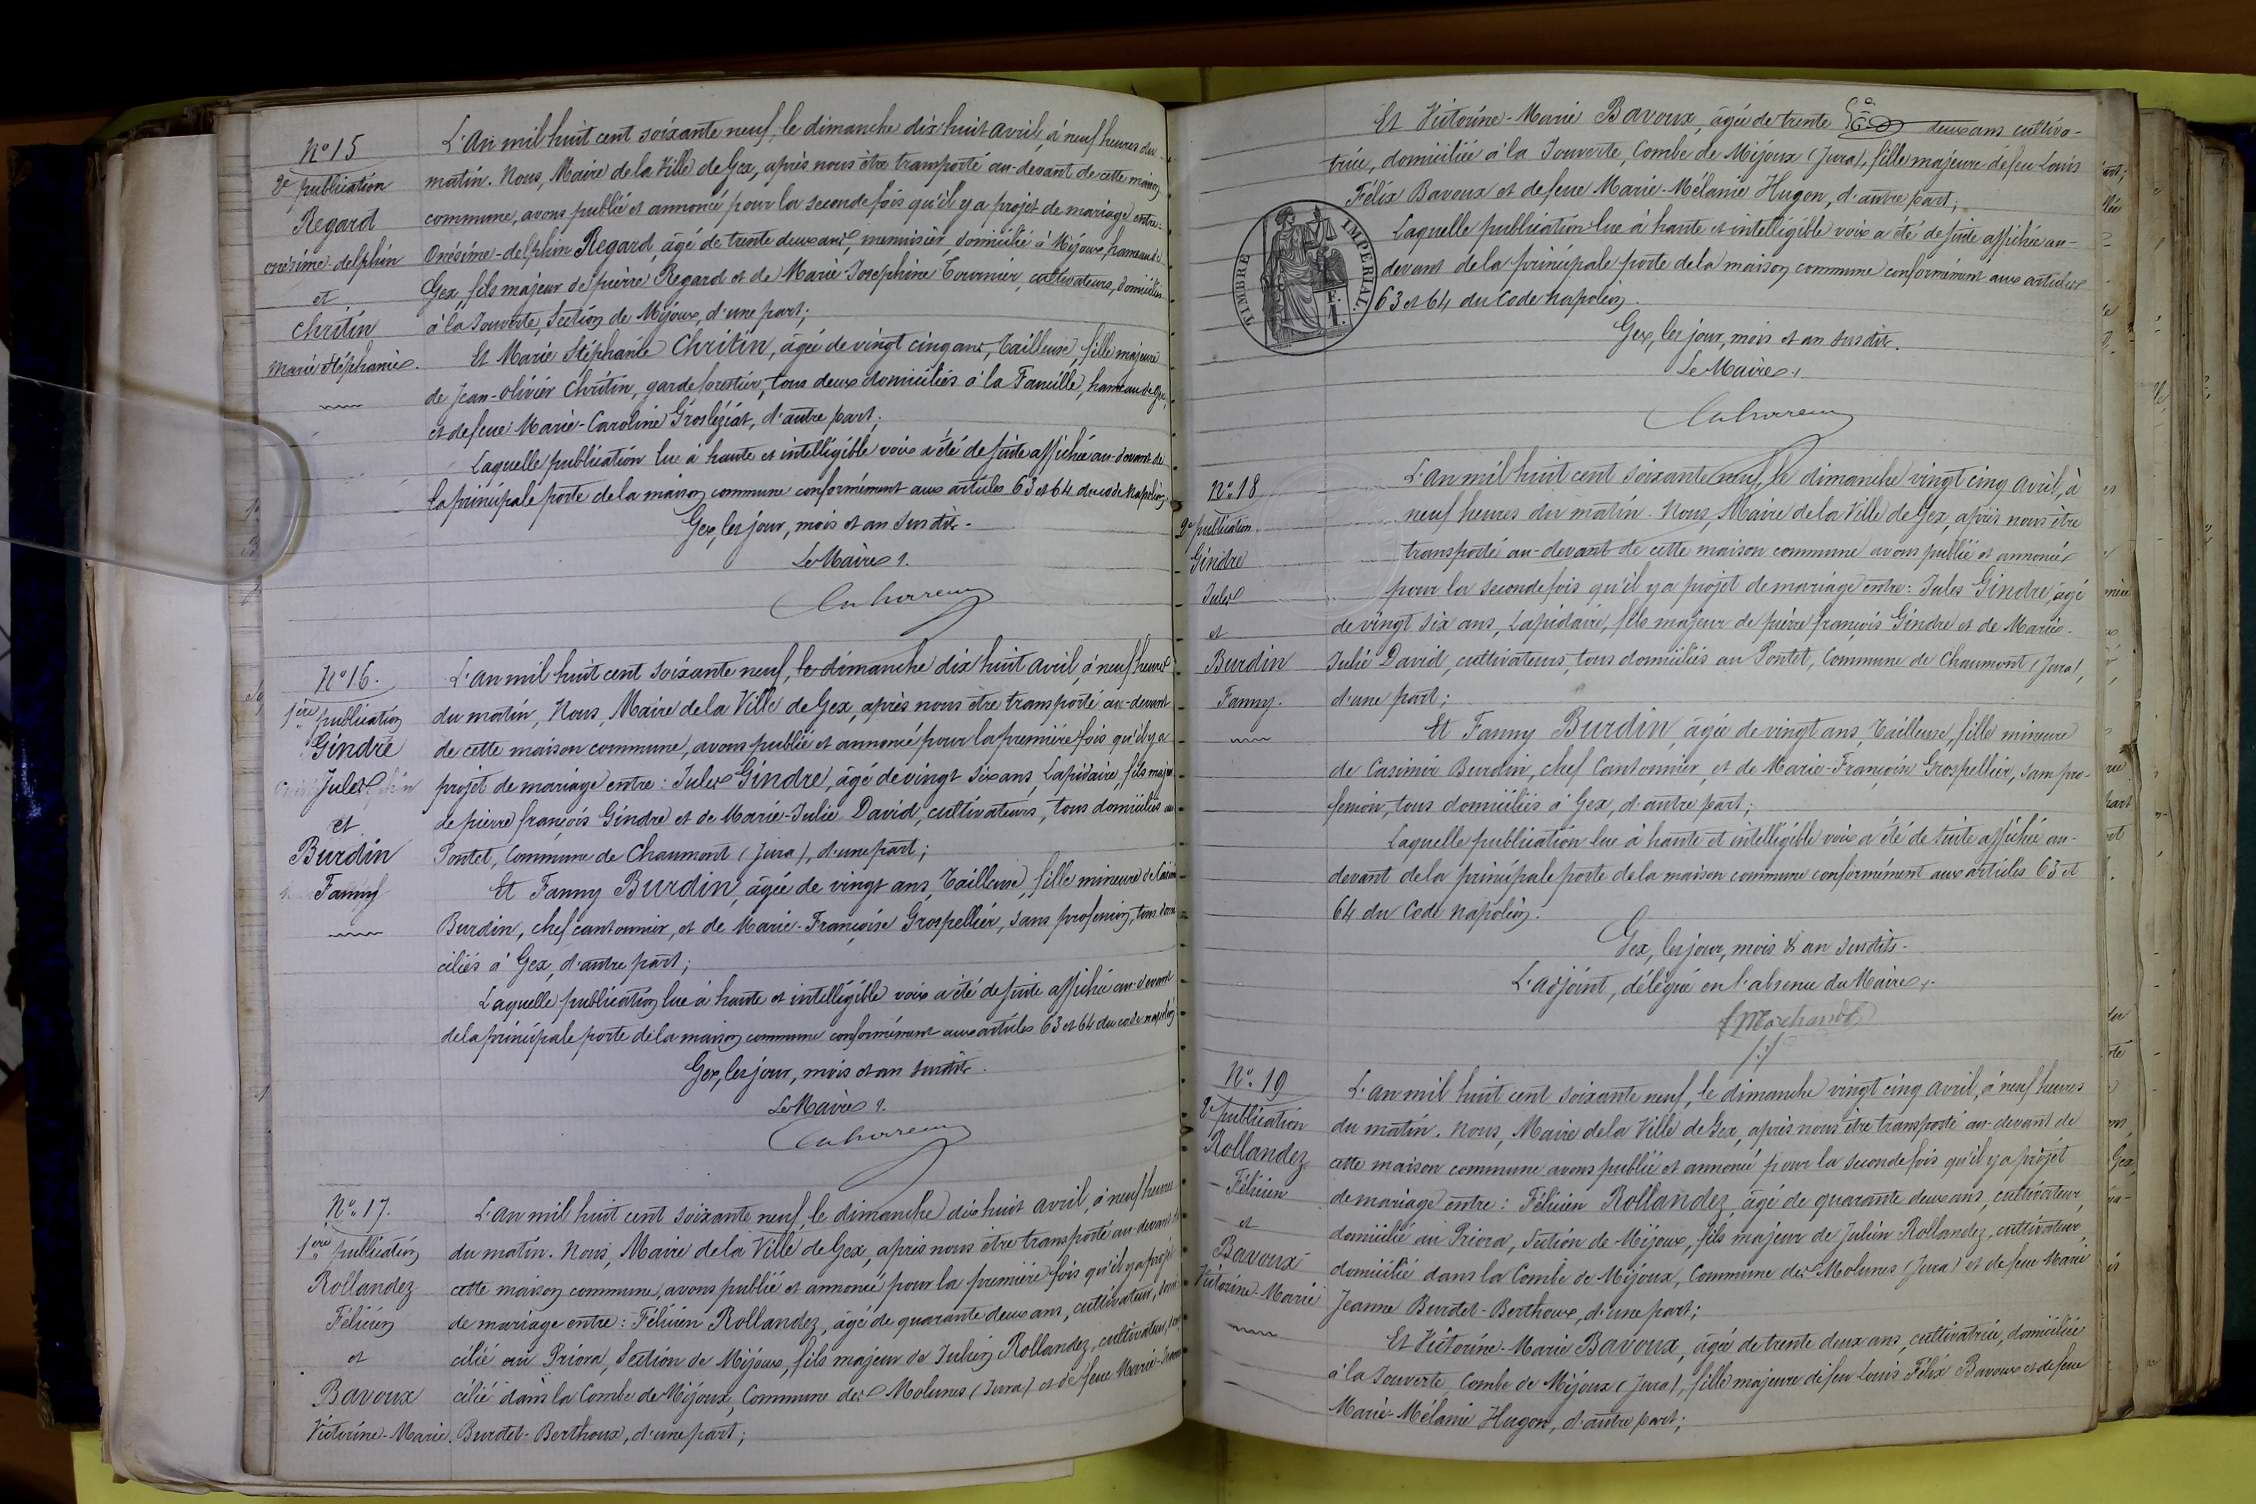 No 15
2e publication
Regard
onésime-delphin
et
Chritin
Marie Stéphanie.
L'an mil huit cent soixante neuf, le dimanche dix huit avril, à neuf heures du
matin. Nous, Maire de la Ville de Gex, après nous être transporté au-devant de cette maison
commune, avons publié et annoncé pour la seconde fois qu'il y a projet de mariage entre:
Onésime-delphin Regard, âgé de trente deux ans, menuisier, domicilié à Mijoux, hameau de
Gex, fils majeur de pierre Regard et de Marie-Josephine Tournier, cultivateurs, domiciliés
à la Souverte, Section de Mijoux, d'une part;
Et Marie Stéphanie Chritin, âgée de vingt cinq ans, Tailleuse, fille majeure
de Jean-Olivier Chritin, garde forestier, tous deux domiciliés à la Faucille, hameau de Gex,
et de feue Marie-Caroline Grosléziat, d'autre part;
Laquelle publication lue à haute et intelligible voix a été de suite affichée au-devant de
la principale porte de la maison commune conformément aux articles 63 et 64 du code Napoléon.
Gex, les jour, mois et an sus dits.
Le Maire
No 16.
1ère publication
Gindre
Jules
et
Burdin
Fanny
L'an mil huit cent soixante neuf, le dimanche dix huit avril, à neuf heures
du matin, Nous, Maire de la Ville de Gex, après nous être transporté au-devant
de cette maison commune, avons publié et annoncé pour la première fois qu'il y a
projet de mariage entre: Jules Gindre, âgé de vingt six ans, Lapidaire, fils majeur
de pierre françois Gindre et de Marie-Julie David, cultivateurs, tous domiciliés au
Pontet, Commune de Chaumont (Jura), d'une part;
Et Fanny Burdin, âgée de vingt ans, Tailleuse, fille mineure de Casimir
Burdin, chef cantonnier, et de Marie-Françoise Grospellier, sans profession, tous domi-
ciliés à Gex, d'autre part;
Laquelle publication lue à haute et intelligible voix a été de suite affichée au-devant
de la principale porte de la maison commune conformément aux articles 63 et 64 du code napoléon
Gex, les jour, mois et an susdits.
Le Maire
No 17.
1ère publication
Rollandez
Félicien
et
Bavoux
Victorine-Marie.
L'an mil huit cent soixante neuf, le dimanche dix huit avril, à neuf heures
du matin. Nous, Maire de la Ville de Gex, après nous être transporté au-devant de
cette maison commune, avons publié et annoncé pour la première fois qu'il y a projet
de mariage entre: Félicien Rollandez, âgé de quarante deux ans, cultivateur, domi-
cilié au Priora, Section de Mijoux, fils majeur de Julien Rollandez, cultivateur, domi-
cilié dans la Combe de Mijoux, Commune des Molunes (Jura) et de feue Marie-Jeanne
Burdet-Berthoux, d'une part;
Et Victorine-Marie Bavoux, âgée de trente deux ans cultiva-
trice, domiciliée à la Souverte, Combe de Mijoux (Jura), fille majeure de feu Louis
Félix Bavoux et de feue Marie-Mélanie Hugon, d'autre part;
Laquelle publication lue à haute et intelligible voix a été de suite affichée au-
devant de la principale porte de la maison commune conformément aux articles
63 et 64 du Code Napoléon.
TIMBRE IMPERIAL.
Gex, les jour, mois et an susdits.
Le Maire
No 18
2e publication.
Gindre
Jules
et
Burdin
Fanny.
L'an mil huit cent soixante neuf, le dimanche vingt cinq avril, à
neuf heures du matin. Nous, Maire de la Ville de Gex, après nous être
transporté au-devant de cette maison commune avons publié et annoncé
pour la seconde fois qu'il y a projet de mariage entre: Jules Gindre, âgé
de vingt six ans, Lapidaire, fils majeur de pierre françois Gindre et de Marie-
Julie David, cultivateurs, tous domiciliés au Pontet, Commune de Chaumont (Jura),
d'une part;
Et Fanny Burdin, âgée de vingt ans, Tailleuse, fille mineure
de Casimir Burdin, chef Cantonnier, et de Marie-Françoise Grospellier, sans pro-
fession, tous domiciliés à Gex, d'autre part;
Laquelle publication lue à haute et intelligible voix a été de suite affichée au-
devant de la principale porte de la maison commune conformément aux articles 63 et
64 du Code Napoléon.
Gex, les jour, mois & an susdits.
L'adjoint, délégué en l'absence du Maire
Marchand
No 19
2e publication
Rollandez
Félicien
et
Bavoux
Victorine-Marie
L'an mil huit cent soixante neuf, le dimanche vingt cinq avril, à neuf heures
du matin. Nous, Maire de la Ville de Gex, après nous être transporté au-devant de
cette maison commune avons publié et annoncé pour la seconde fois qu'il y a projet
de mariage entre: Félicien Rollandez, âgé de quarante deux ans, cultivateur,
domicilié au Priora, Section de Mijoux, fils majeur de Julien Rollandez, cultivateur,
domicilié dans la Combe de Mijoux, Commune des Molunes (Jura) et de feue Marie
Jeanne Burdet-Berthoux, d'une part;
Et Victorine-Marie Bavoux, âgée de trente deux ans, cultivatrice, domiciliée
à la Souverte, Combe de Mijoux (Jura), fille majeure de feu Louis Félix Bavoux et de feue
Marie-Mélanie Hugon, d'autre part;